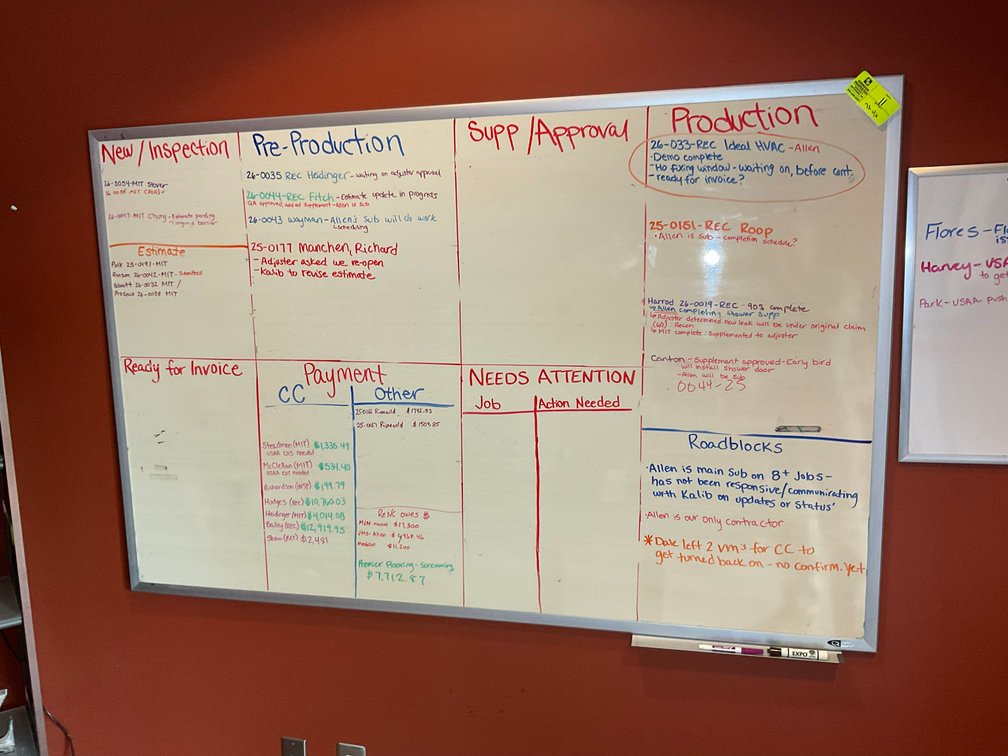 New/Inspection
26-0054-MIT Stover
26-0047-MIT Chung - Estimate pending
-language barrier
Estimate
Park 25-0191-MIT
26-0042-MIT - Submitted
26-0032 MIT /
26-0038 MIT
Pre-Production
26-0035 REC Heidinger - waiting on adjuster approval
26-0044-REC Fitch - Estimate update in progress
supplement - Allen is sub
26-0043 Wayman - Allen's Sub will do work
scheduling
25-0177 Manchen, Richard
- Adjuster asked we re-open
- Kalib to revise estimate
Supp/Approval
Production
26-033-REC Ideal HVAC - Allen
- Demo complete
- Ho fixing window - waiting on, before cont.
- ready for invoice?
25-0151-REC Roop
• Allen is Sub - completion schedule?
Harrod 26-0019-REC - 90% complete
↳ Allen completing shower Supp
↳ Adjuster determined new leak will be under original claim
Recon
↳ MIT complete: Supplemented to adjuster
Canton - Supplement approved - Early bird
will install shower door
- Allen will be sub
0044-25
Ready for Invoice
Payment
CC
Steadman (MIT) $1,335.49
USAA COS needed
McClellan (MIT) $534.40
USAA COS needed
Richardson (INSP) $199.79
Hodges (Rec) $10,760.03
Heidinger (MIT) $4,014.08
Bailey (REC) $12,919.95
Shaw (REC) $2,481
Other
$1782.92
$1509.85
owes $
$17,300
-Allen
$11,200
Premier Flooring - Screaming
$7,712.87
NEEDS ATTENTION
Job
Action Needed
Roadblocks
• Allen is main Sub on 8+ Jobs -
has not been responsive/communicating
with Kalib on updates or Status'
• Allen is our only contractor
* Dale left 2 vm's for CC to
get turned back on - no confirm. yet
11
EXPO
Flores - Fl
is
Harvey - USA
to ge
Park - USAA - push